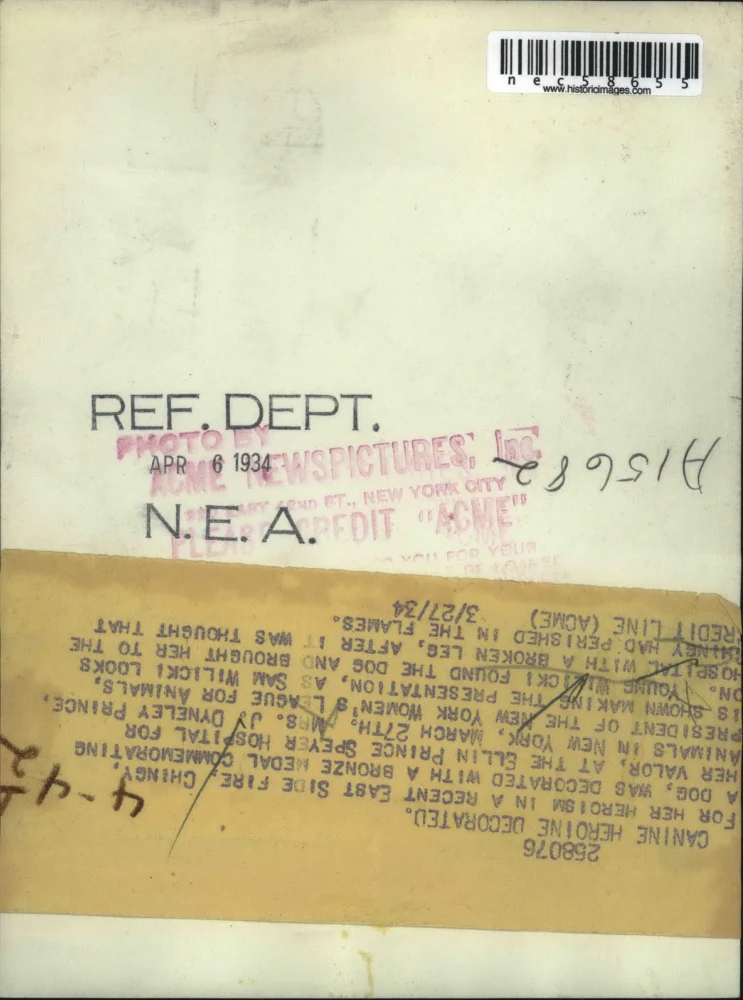 nec58655
www.historicimages.com
REF. DEPT.
PHOTO BY
APR 6 1934
ACME NEWSPICTURES, Inc.
ST., NEW YORK CITY
N.E.A.
PLEASE CREDIT "ACME"
YOU FOR YOUR
A15682
258076
CANINE HEROINE DECORATED.
FOR HER HEROISM IN A RECENT EAST SIDE FIRE, CHINGY,
A DOG, WAS DECORATED WITH A BRONZE MEDAL COMMEMORATING
HER VALOR, AT THE ELLIN PRINCE SPEYER HOSPITAL FOR
ANIMALS IN NEW YORK, MARCH 27TH. MRS. J. DYNELEY PRINCE,
PRESIDENT OF THE NEW YORK WOMEN'S LEAGUE FOR ANIMALS,
IS SHOWN MAKING THE PRESENTATION, AS SAM WILLICKI LOOKS
ON. YOUNG WILLICKI FOUND THE DOG AND BROUGHT HER TO THE
HOSPITAL WITH A BROKEN LEG, AFTER IT WAS THOUGHT THAT
CHINEY HAD PERISHED IN THE FLAMES.
CREDIT LINE (ACME) 3/27/34